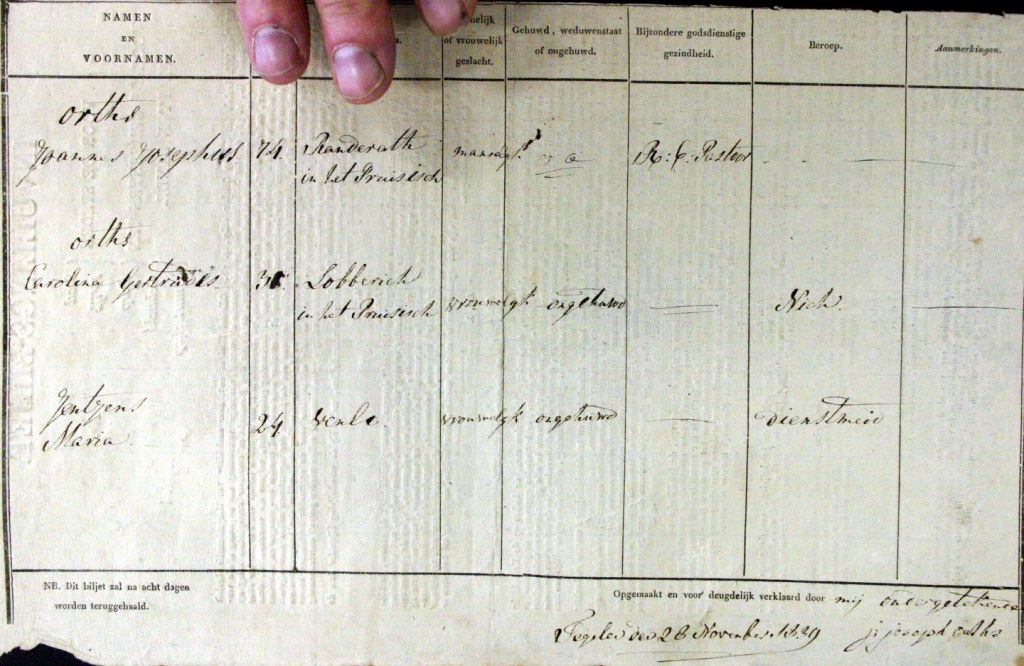 NAMEN
EN
VOORNAMEN.
of vrouwelijk
geslacht.
Gehuwd, weduwenstaat
of ongehuwd.
Bijzondere godsdienstige
gezindheid.
Beroep.
Aanmerkingen.
orths
Joannes Josephus 74. Randerath manelyk R: C: Pastoor
in het Pruisisch
orths
Carolina Gertrudis Lobberich
in het Pruisisch vrouwelyk ongehuwd Nich.
Jentjens
Maria 24 Venlo vrouwelyk ongehuwd dienstmeid
NB. Dit biljet zal na acht dagen
worden teruggehaald.
Opgemaakt en voor deugdelijk verklaard door mij ondergetekende
Tegelen den 28 November 1829 j: joseph orths